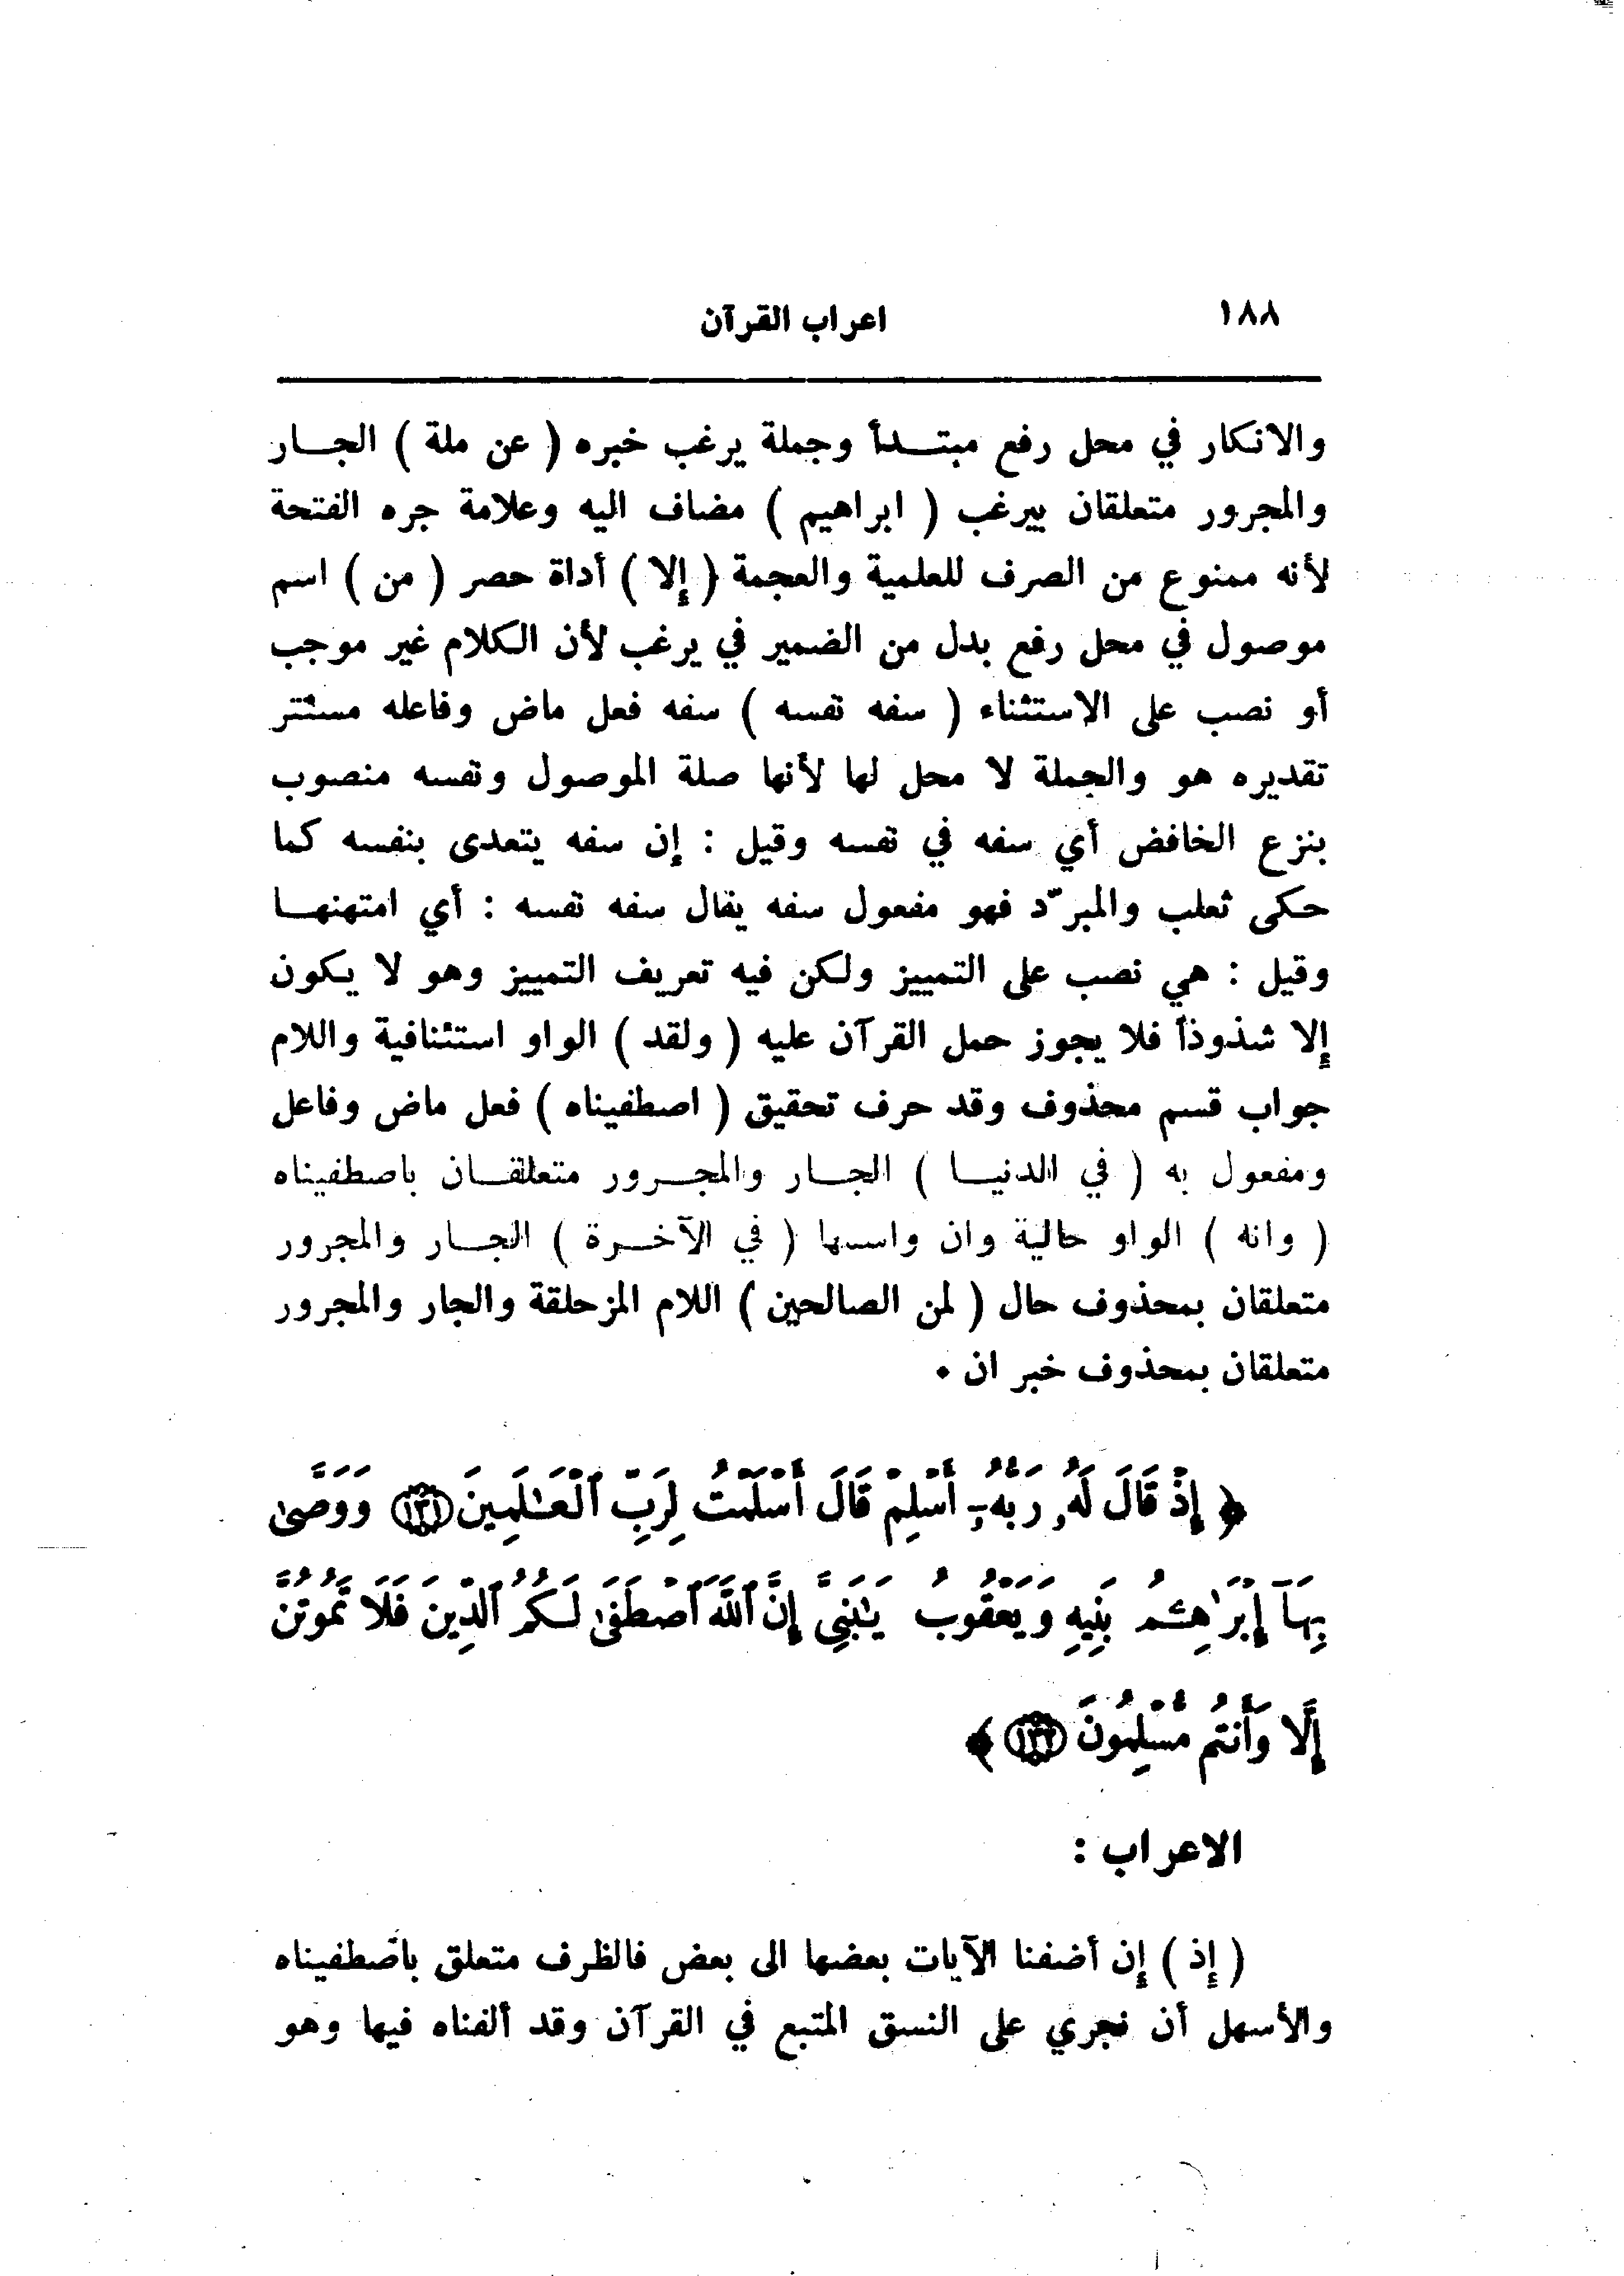 ١٨٨ اعراب القرآن
والانكار في محل رفع مبتــدأ وجملة يرغب خبره ( عن ملة ) الجــار
والمجرور متعلقان بيرغب ( ابراهيم ) مضاف اليه وعلامة جره الفتحة
لأنه ممنوع من الصرف للعلمية والعجمة ( إلا ) أداة حصر ( من ) اسم
موصول في محل رفع بدل من الضمير في يرغب لأن الكلام غير موجب
أو نصب على الاستثناء ( سفه نفسه ) سفه فعل ماض وفاعله مستتر
تقديره هو والجملة لا محل لها لأنها صلة الموصول ونفسه منصوب
بنزع الخافض أي سفه في نفسه وقيل : إن سفه يتعدى بنفسه كما
حكى ثعلب والمبرّد فهو مفعول سفه يقال سفه نفسه : أي امتهنهــا
وقيل : هي نصب على التمييز ولكن فيه تعريف التمييز وهو لا يكون
إلا شذوذاً فلا يجوز حمل القرآن عليه ( ولقد ) الواو استئنافية واللام
جواب قسم محذوف وقد حرف تحقيق ( اصطفيناه ) فعل ماض وفاعل
ومفعول به ( في الدنيــا ) الجــار والمجــرور متعلقــان باصطفيناه
( وانه ) الواو حالية وان واسمها ( في الآخــرة ) الجــار والمجرور
متعلقان بمحذوف حال ( لمن الصالحين ) اللام المزحلقة والجار والمجرور
متعلقان بمحذوف خبر ان ٠
﴿ إِذْ قَالَ لَهُۥ رَبُّهُۥٓ أَسْلِمْ قَالَ أَسْلَمْتُ لِرَبِّ ٱلْعَٰلَمِينَ ١٣١ وَوَصَّىٰ
بِهَآ إِبْرَٰهِـۧمُ بَنِيهِ وَيَعْقُوبُ يَٰبَنِىَّ إِنَّ ٱللَّهَ ٱصْطَفَىٰ لَكُمُ ٱلدِّينَ فَلَا تَمُوتُنَّ
إِلَّا وَأَنتُم مُّسْلِمُونَ ١٣٢ ﴾
الاعراب :
( إذ ) إن أضفنا الآيات بعضها الى بعض فالظرف متعلق باصطفيناه
والأسهل أن نجري على النسق المتبع في القرآن وقد ألفناه فيها وهو